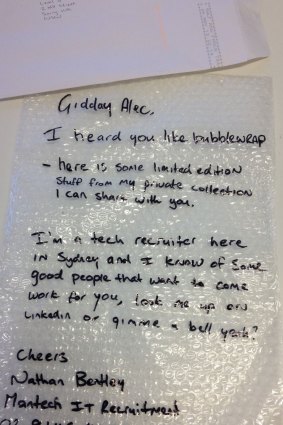 Gidday Alec,
I heard you like bubblewrap
- here is some limited edition
stuff from my private collection
I can share with you.
I'm a tech recruiter here
in Sydney and I know of some
good people that want to come
work for you, look me up on
Linkedin or gimme a bell yeah?
Cheers
Nathan Bentley
Mantech IT Recruitment